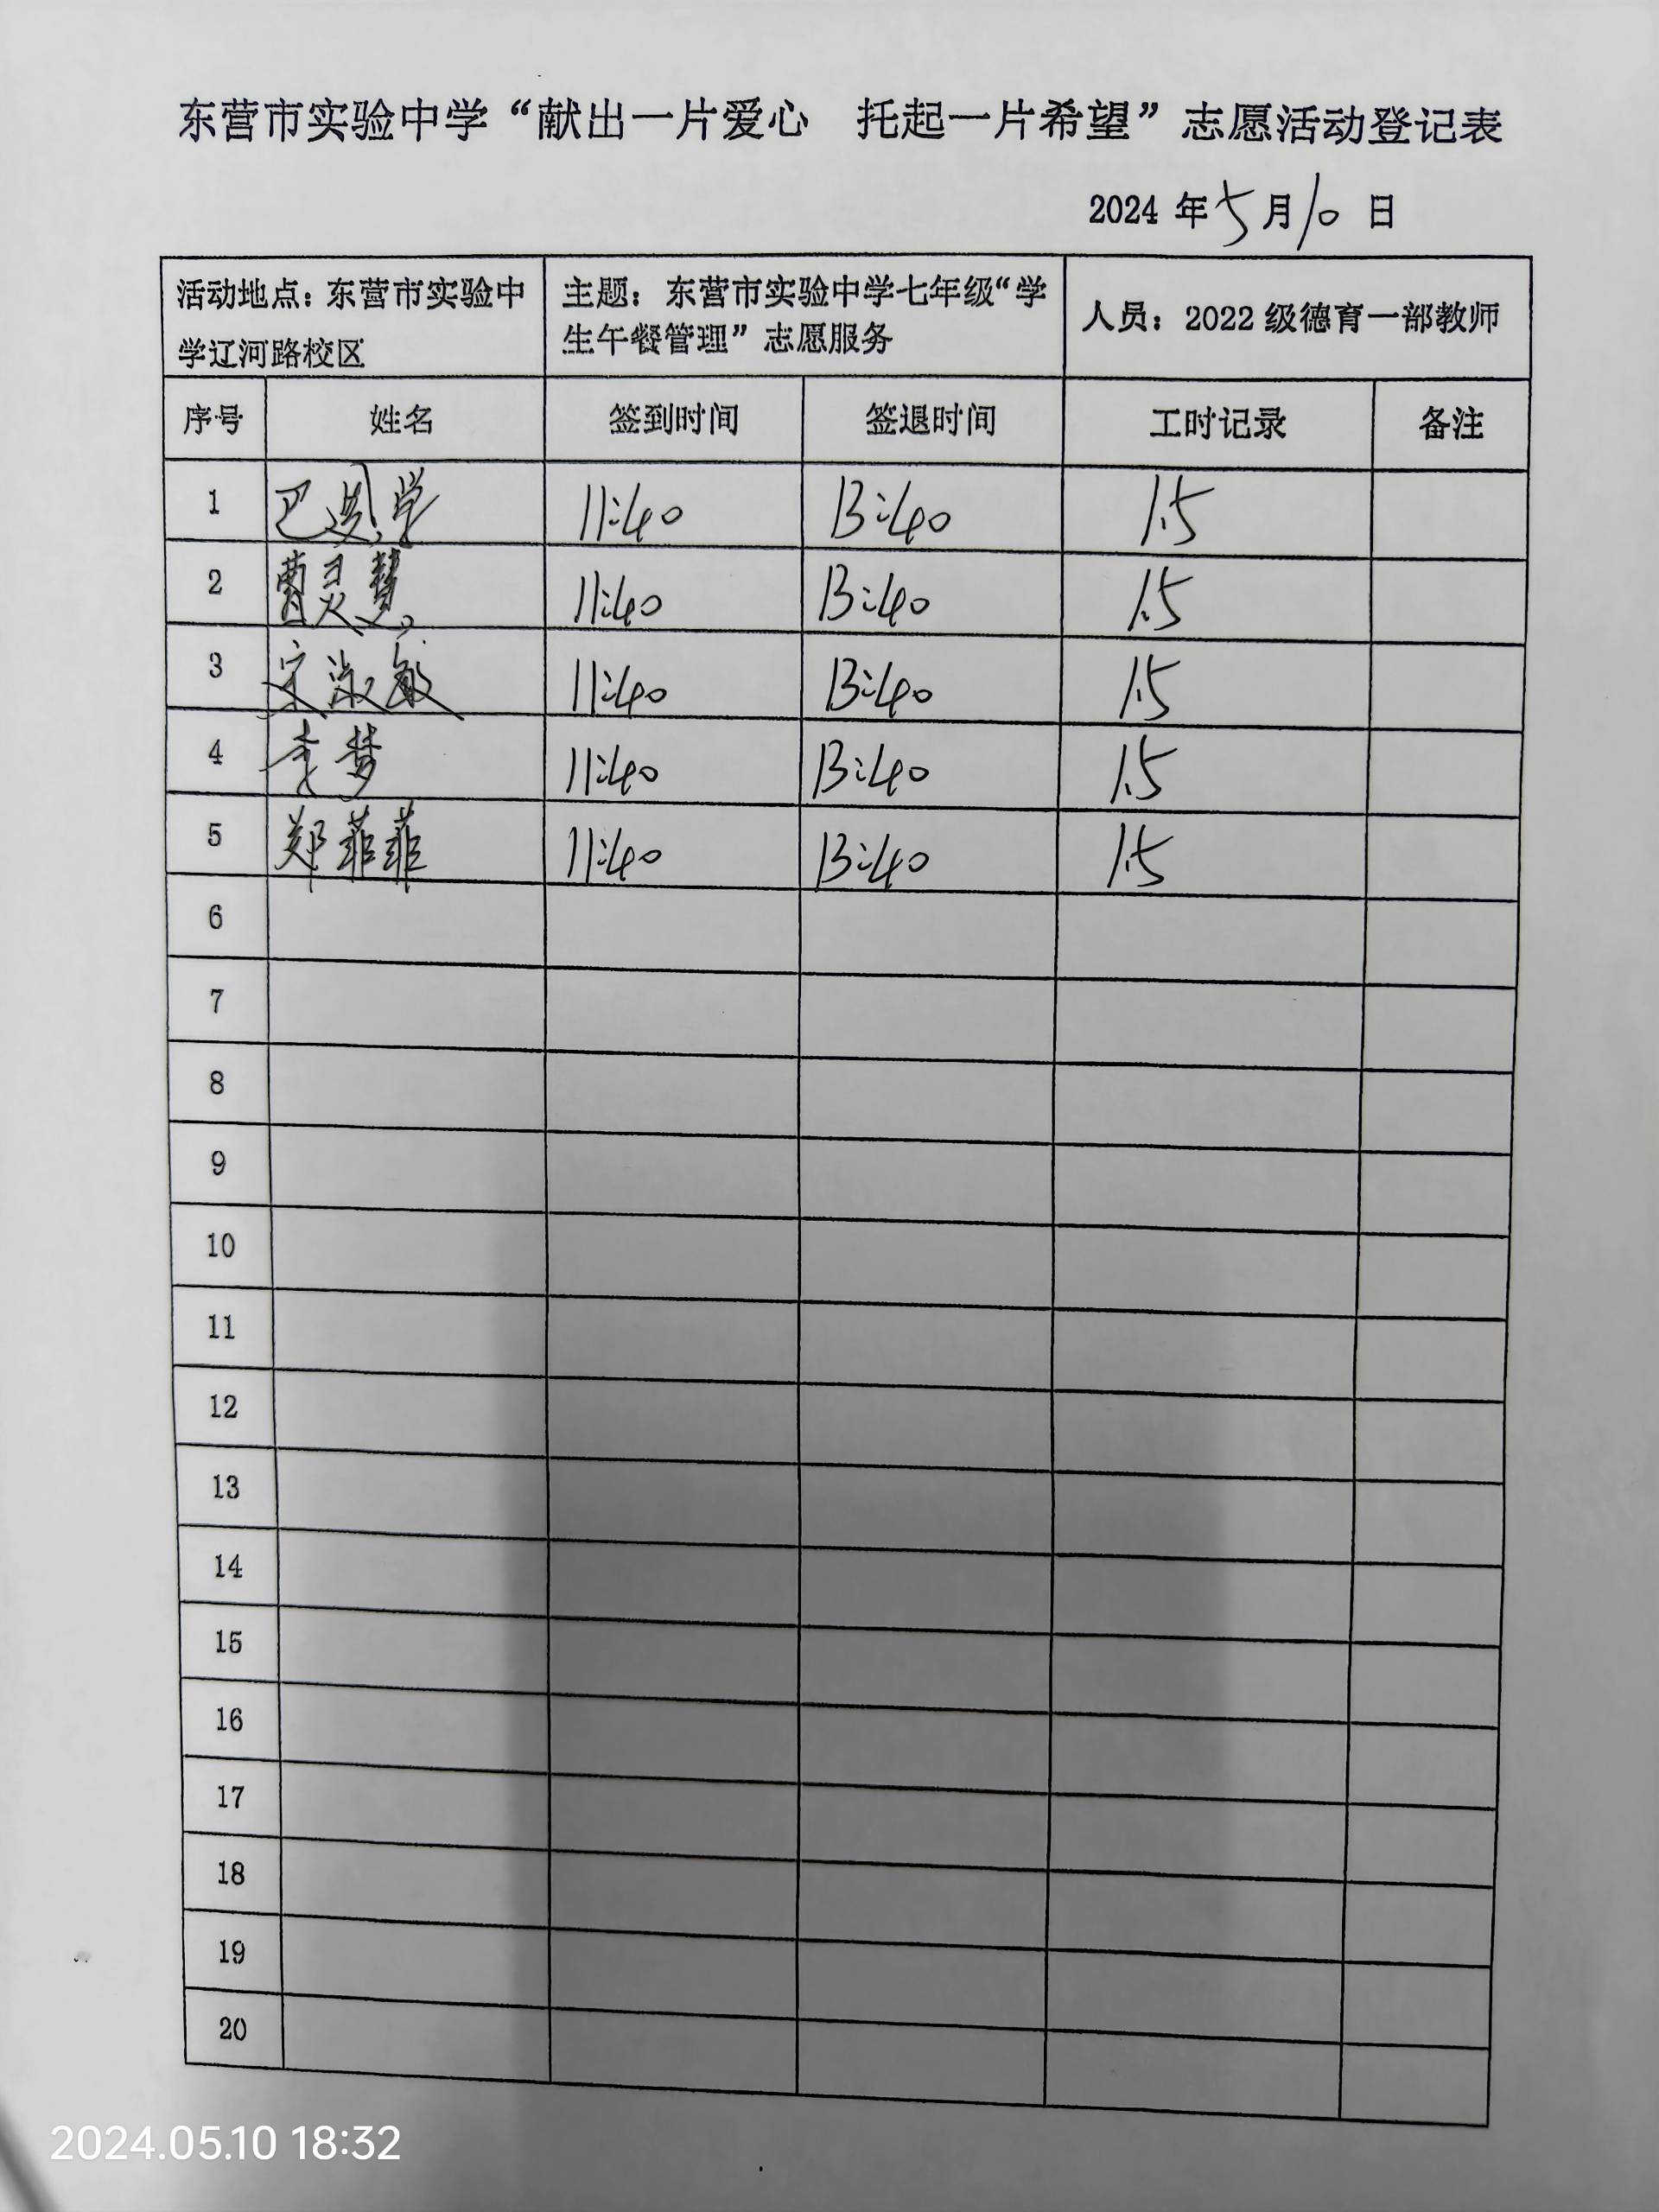 东营市实验中学“献出一片爱心　托起一片希望”志愿活动登记表
2024 年 5 月 10 日
活动地点：东营市实验中
学辽河路校区
主题：东营市实验中学七年级“学
生午餐管理”志愿服务
人员：2022 级德育一部教师
序号 姓名 签到时间 签退时间 工时记录 备注
1 巴 学 11:40 13:40 1.5
2 曹灵慧 11:40 13:40 1.5
3 宋淑敏 11:40 13:40 1.5
4 李梦 11:40 13:40 1.5
5 郑菲菲 11:40 13:40 1.5
6
7
8
9
10
11
12
13
14
15
16
17
18
19
20
2024.05.10 18:32